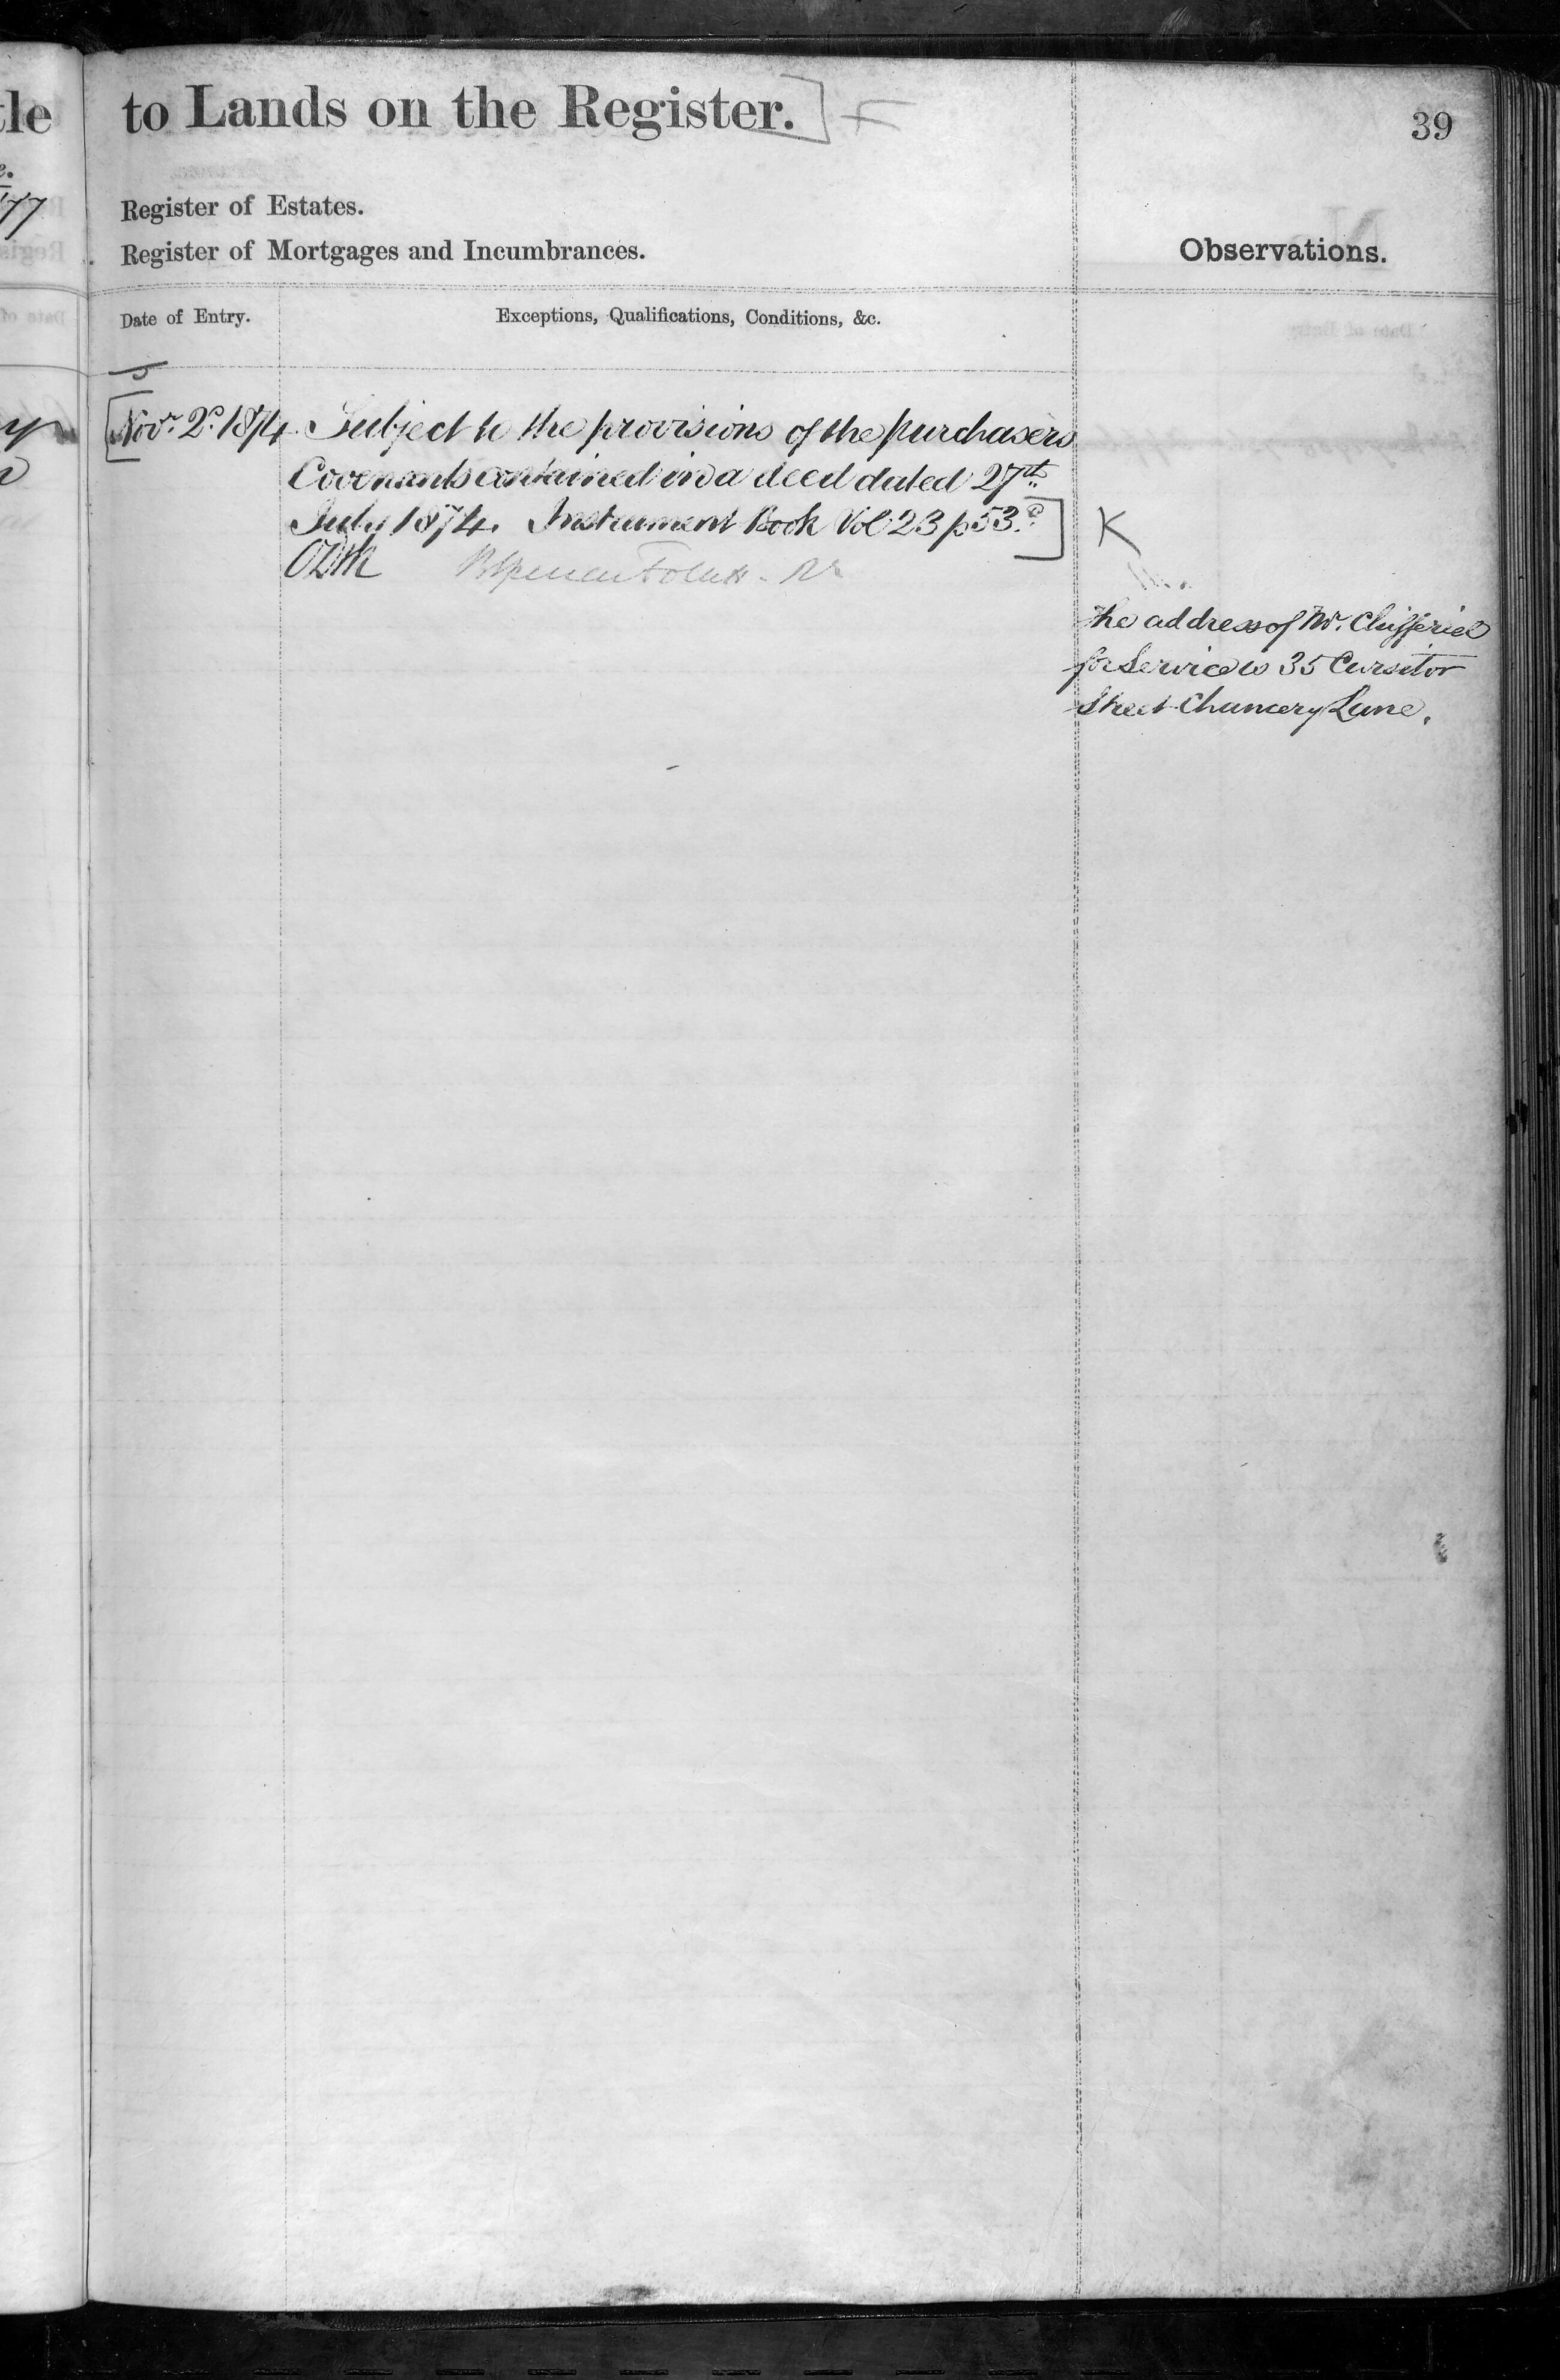 to Lands on the Register.
39
Register of Estates.
Register of Mortgages and Incumbrances.
Observations.
Date of Entry.
Exceptions, Qualifications, Conditions, &c.
5
Novr. 2d. 1874 Subject to the provisions of the purchasers
Covenants contained in a deed dated 27th
July 1874. Instrument Book Vol 23 p 53.
K
the address of Mr. Chifferiel
for Service is 35 Cursitor
Street Chancery Lane.